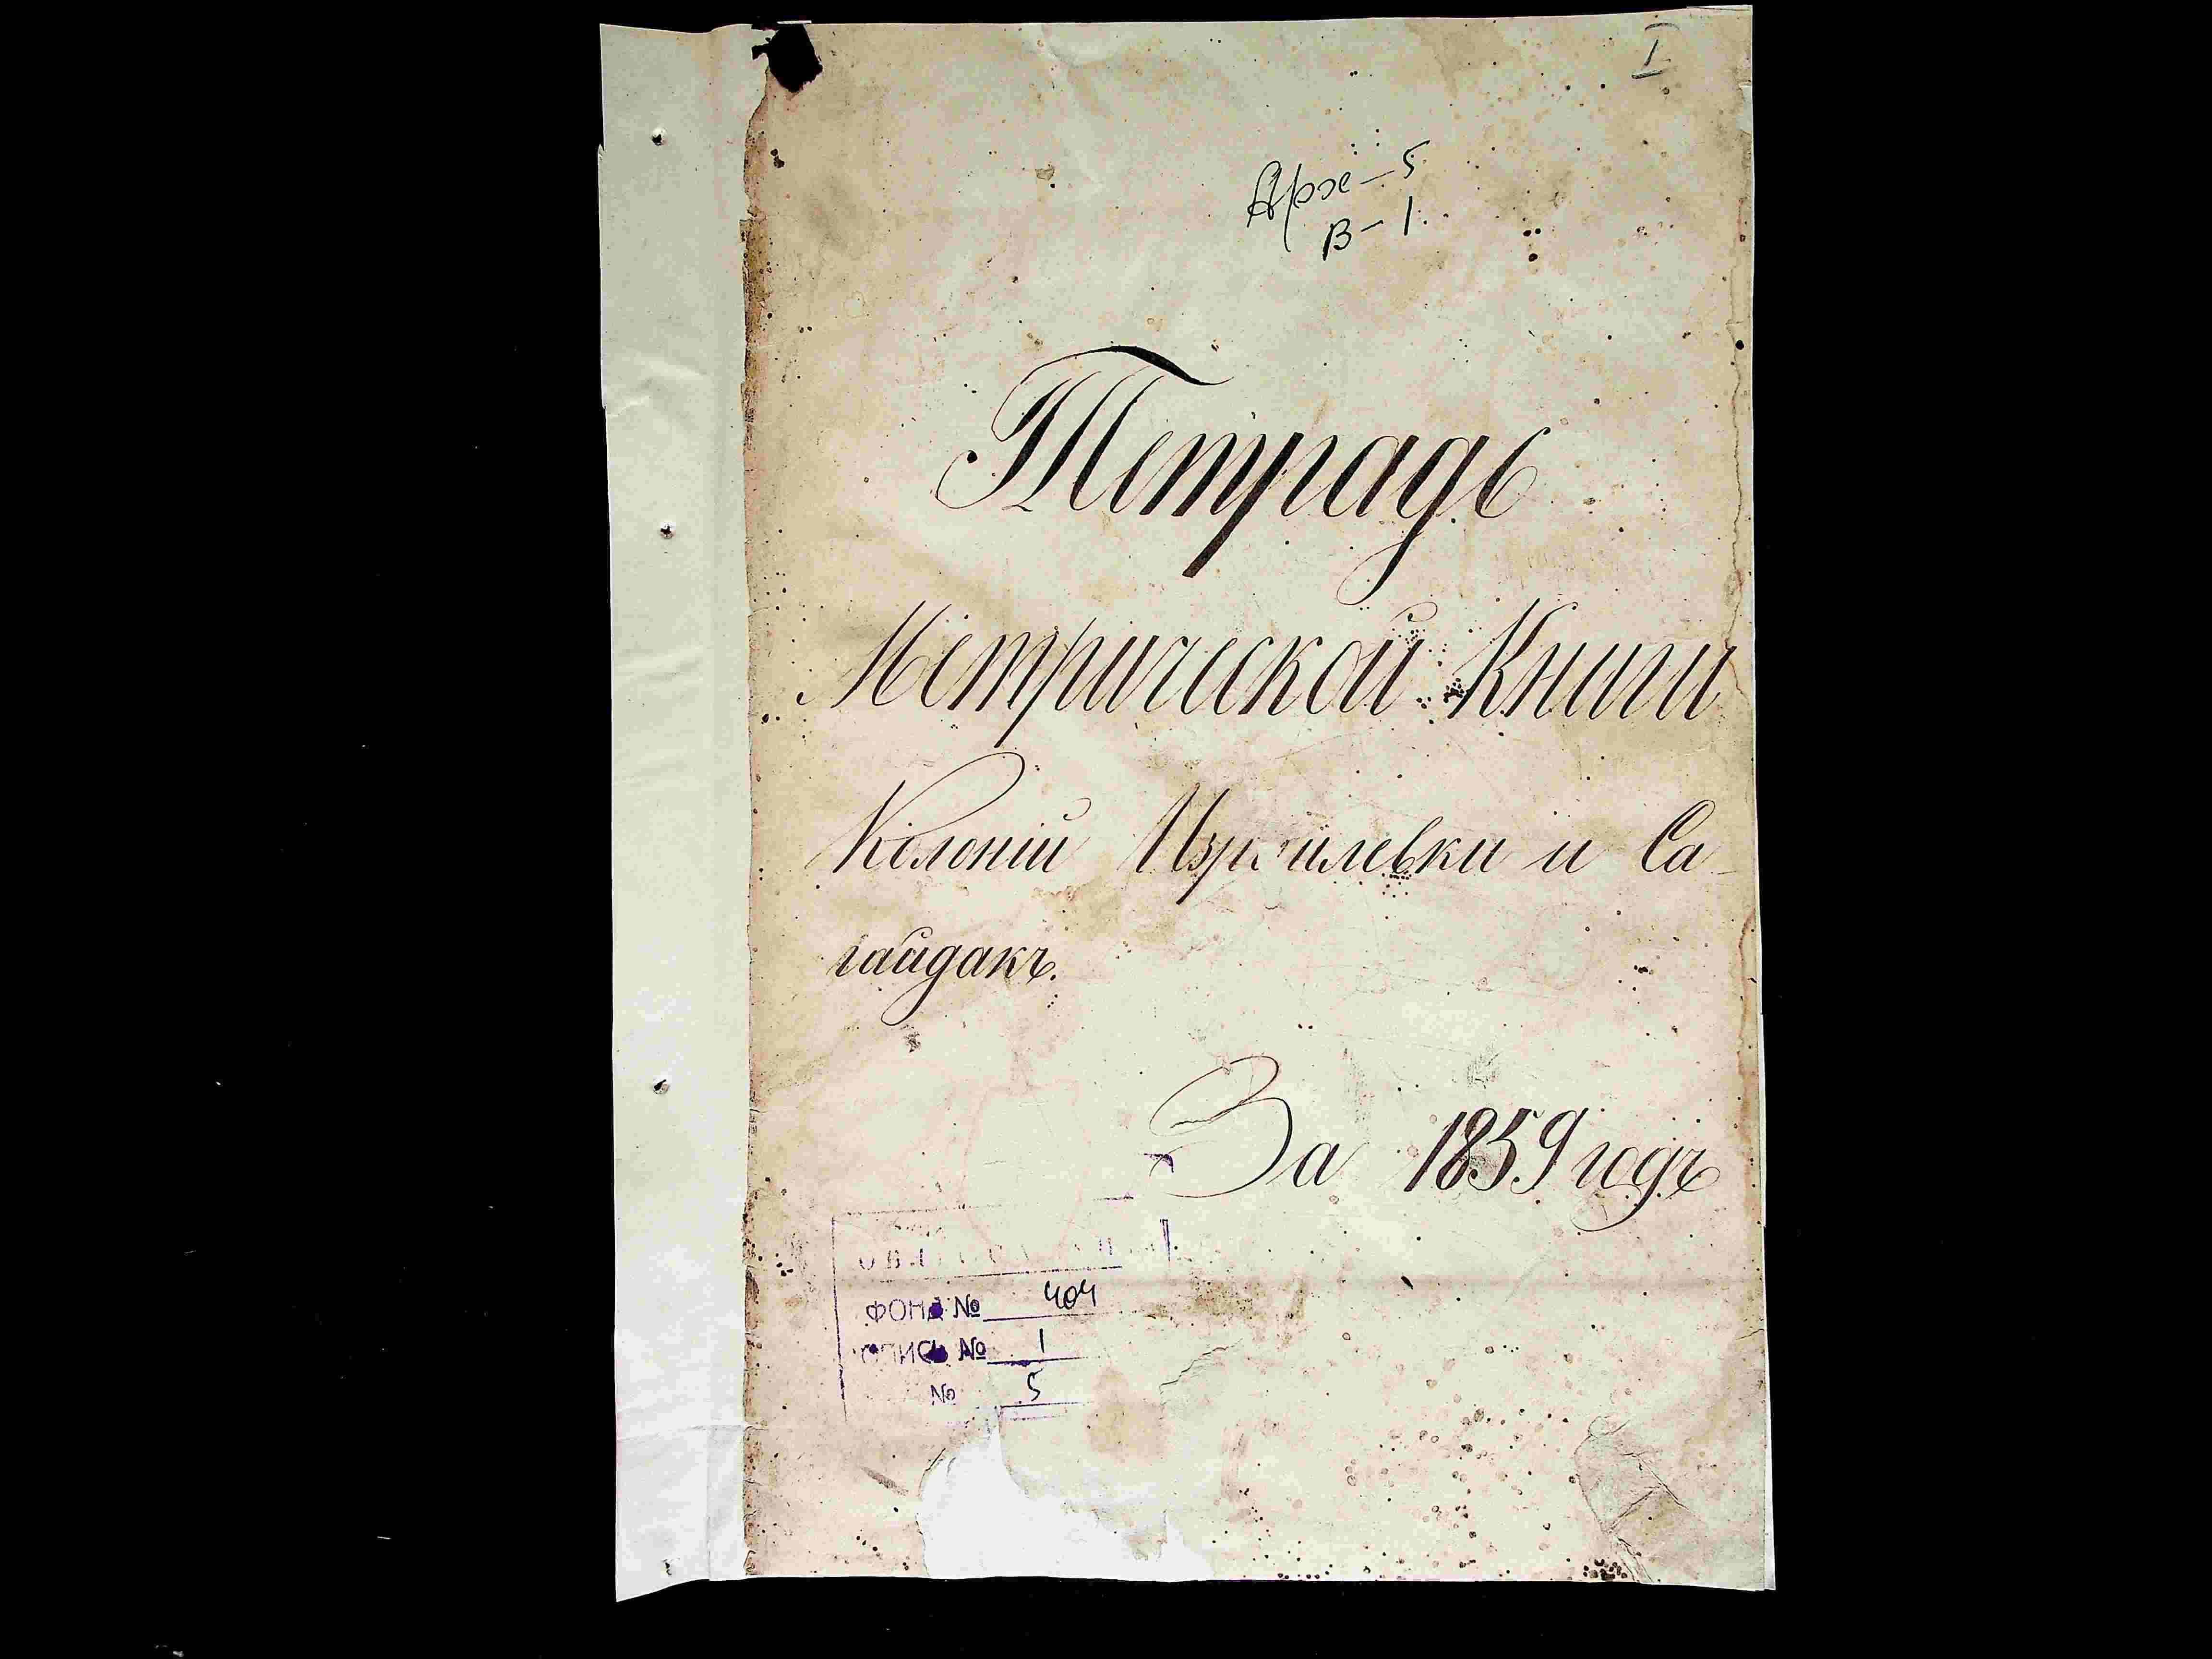 I
Арх – 5
В – 1
Тетрадь
Метрической Книги
Колоніи Израилевки и Са-
гайдакъ.
За 1859 годъ
ФОНД № 404
ОПИСЬ № 1
№ 5